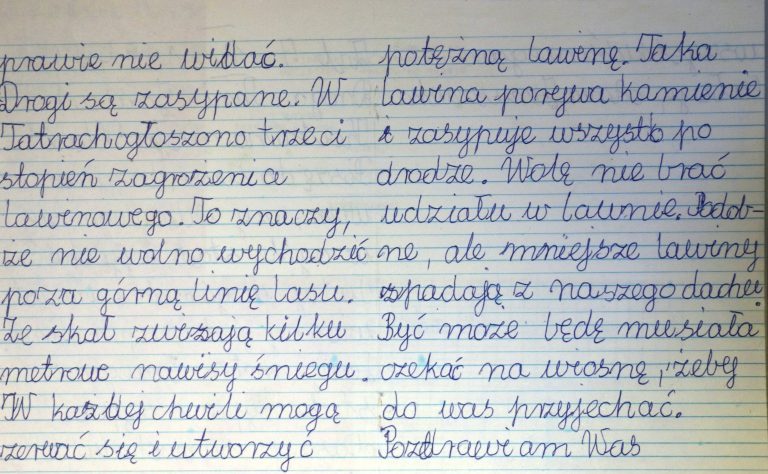 prawie nie widać.
Drogi są zasypane. W
Tatrach ogłoszono trzeci
stopień zagrożenia
lawinowego. To znaczy,
że nie wolno wychodzić
poza górną linię lasu.
Ze skał zwisają kilku
metrowe nawisy śniegu.
W każdej chwili mogą
zerwać się i utworzyć
potężną lawinę. Taka
lawina porywa kamienie
i zasypuje wszystko po
drodze. Wolę nie brać
udziału w lawinie. Podob-
ne, ale mniejsze lawiny
spadają z naszego dachu.
Być może będę musiała
czekać na wiosnę, żeby
do was przyjechać.
Pozdrawiam Was